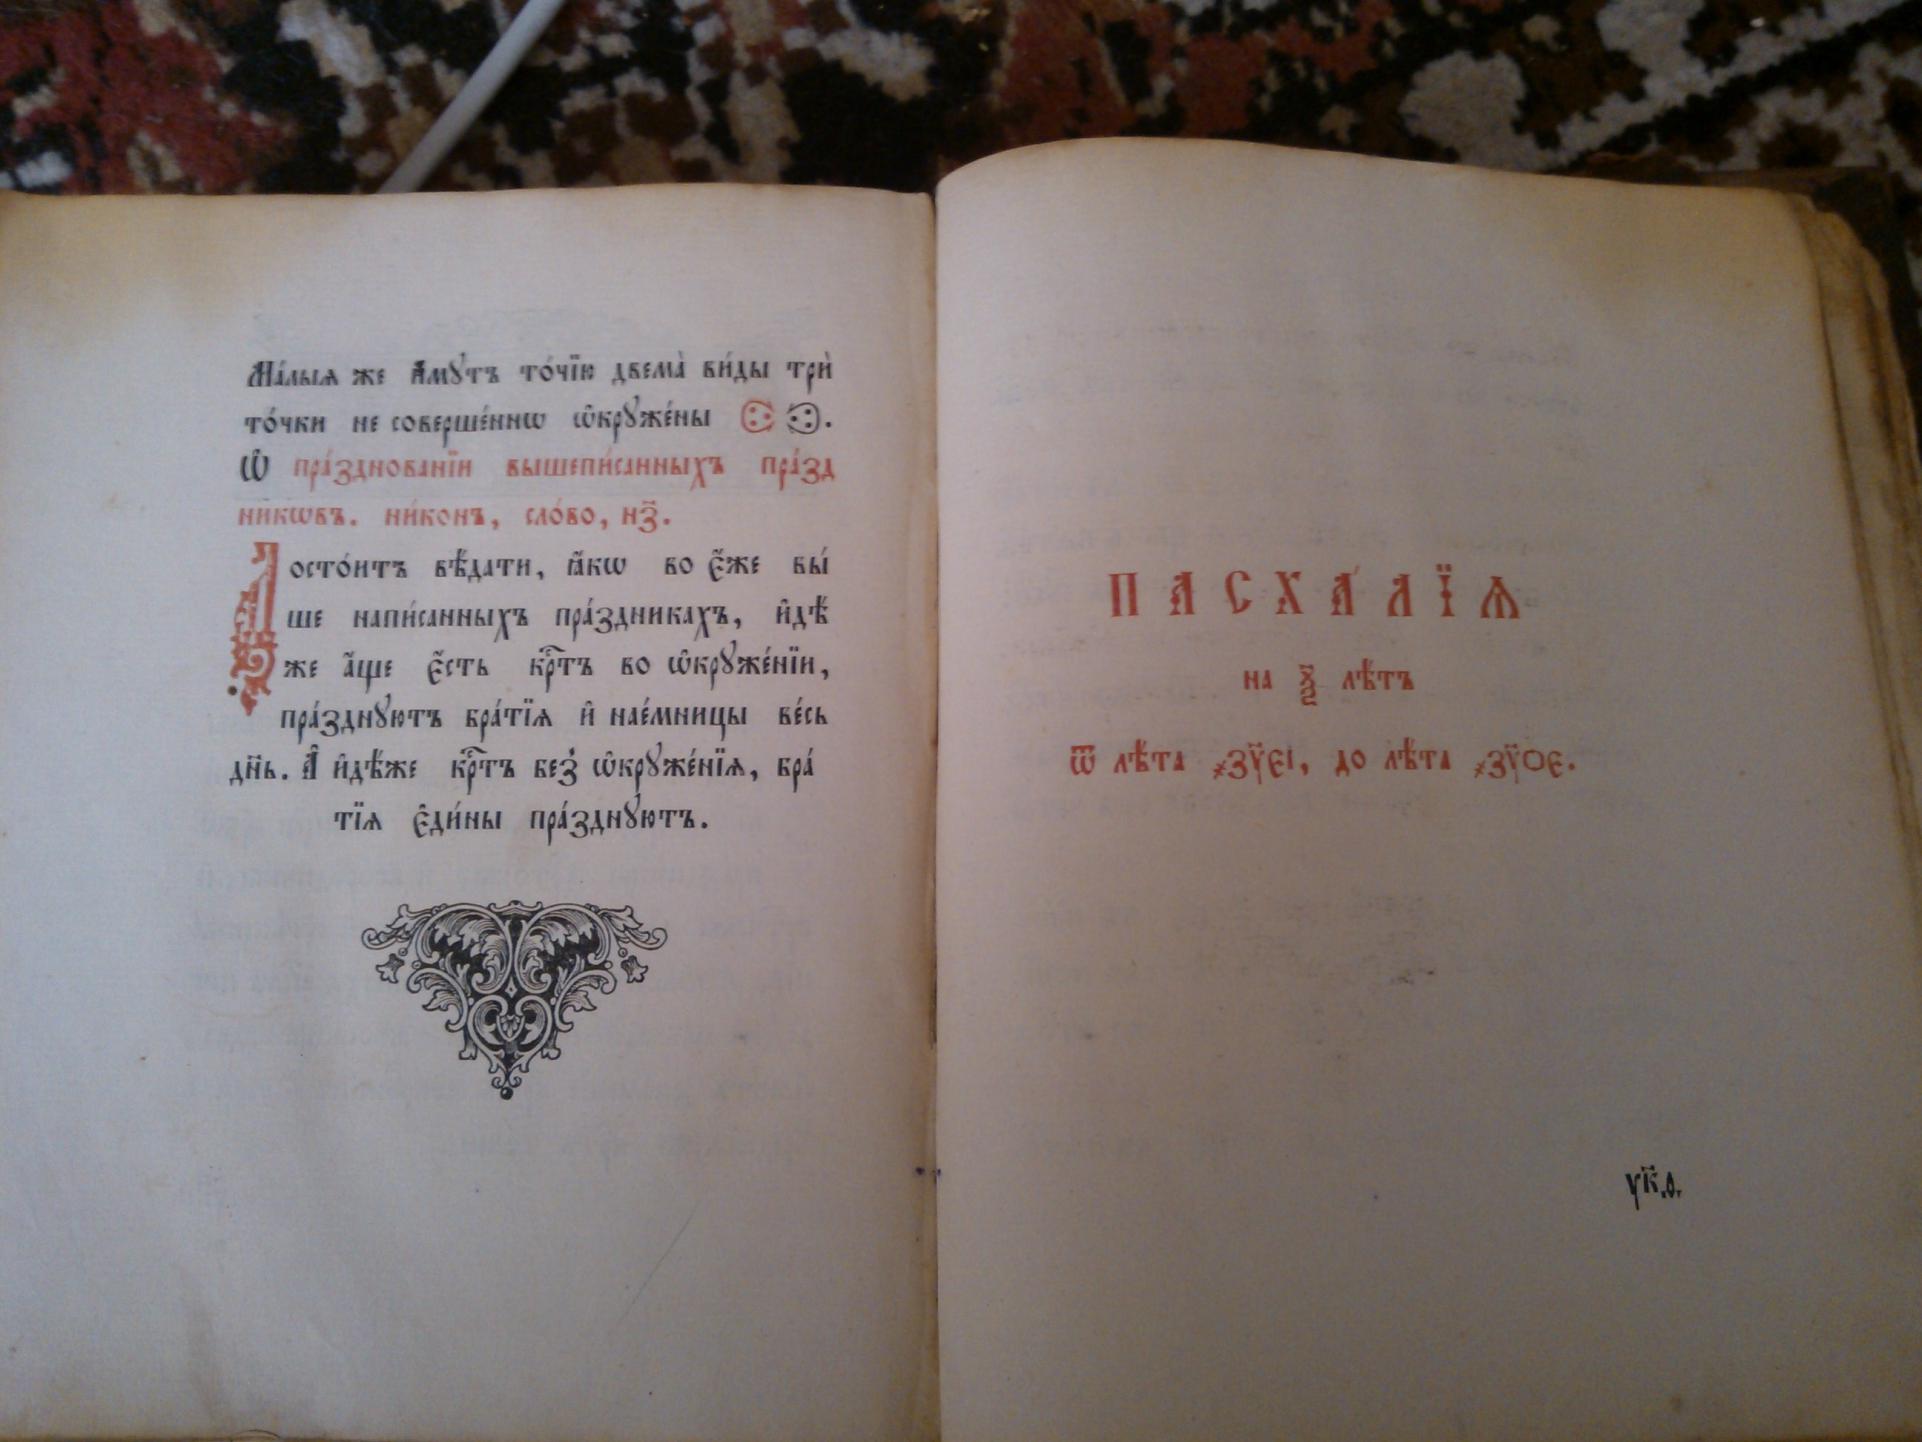 Ма́лыѧ же и҆́мꙋтъ то́чїю двема̀ ви́ды трѝ
то́чки не соверше́ннѡ ѡ҆крꙋже́ны
Ѡ҆ пра́зднованїи вышепи́санныхъ пра́зд
никѡвъ. ни́конъ, сло́во, н҃з.
Досто́итъ вѣ́дати, ꙗ҆́кѡ во є҆́же вы́
ше напи́санныхъ пра́здникахъ, и҆дѣ́
же а҆́ще є҆́сть крⷭ҇тъ во ѡ҆крꙋже́нїи,
пра́зднꙋютъ бра́тїѧ и҆ нае́мницы ве́сь
дн҃ь. А҆ и҆дѣ́же крⷭ҇тъ без̾ ѡ҆крꙋже́нїѧ, бра́
тїѧ є҆ди́ны пра́зднꙋютъ.
ПАСХА́ЛЇѦ
на лѣ́тъ
ѿ лѣ́та ҂зѵ҃еі, до лѣ́та ҂зѵ҃ое.